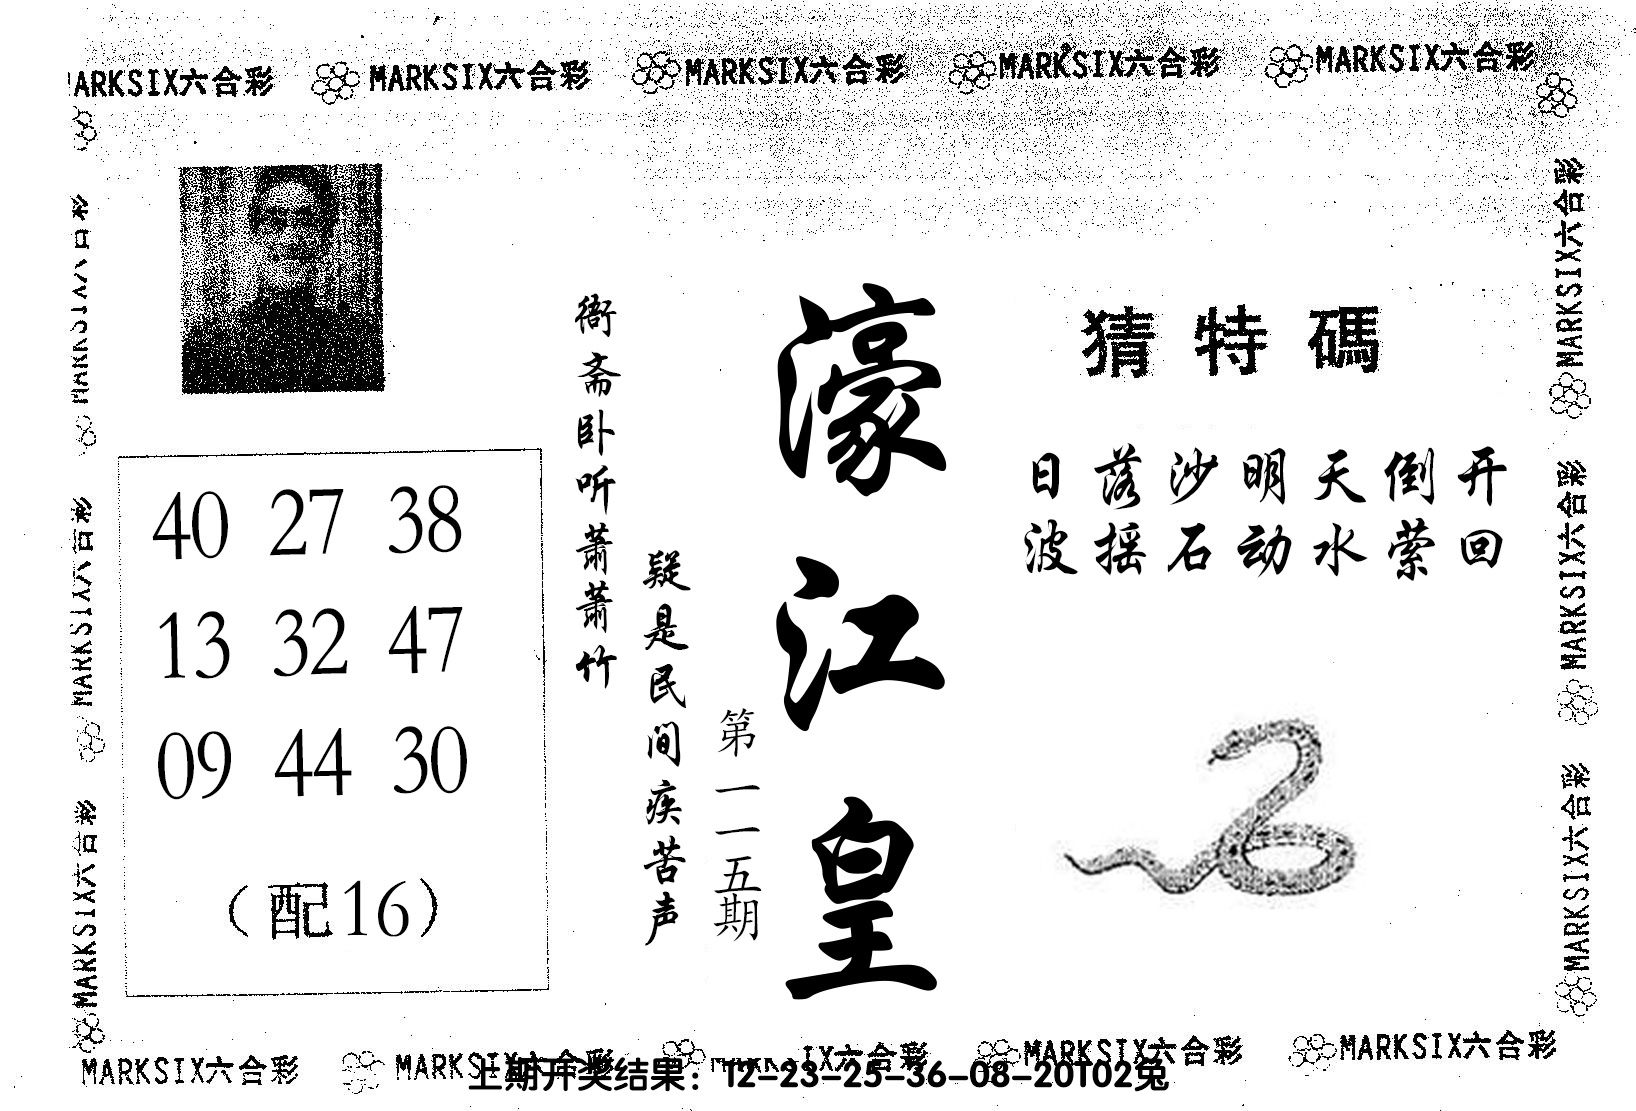 MARKSIX六合彩 MARKSIX六合彩 MARKSIX六合彩 MARKSIX六合彩 MARKSIX六合彩
猜特碼
日落沙明天倒开
波摇石动水萦回
濠江皇
第一一五期
衙斋卧听萧萧竹
疑是民间疾苦声
40 27 38
13 32 47
09 44 30
（配16）
MARKSIX六合彩
MARKSIX六合彩
MARKSIX六合彩
MARKSIX六合彩
MARKSIX六合彩
MARKSIX六合彩
MARKSIX六合彩 MARKSIX六合彩 MARKSIX六合彩 MARKSIX六合彩 MARKSIX六合彩
上期开奖结果：12-23-25-36-08-20T02兔